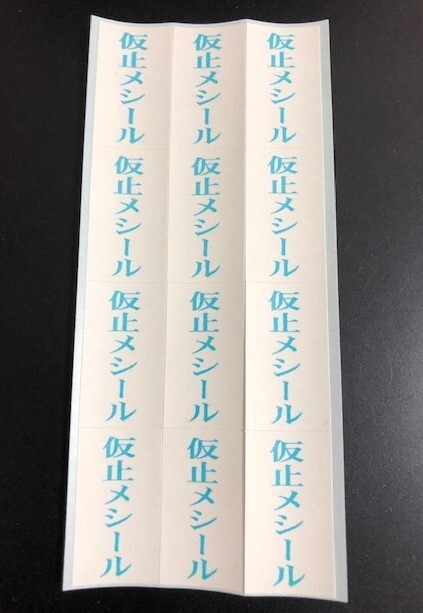 仮止メシール
仮止メシール
仮止メシール
仮止メシール
仮止メシール
仮止メシール
仮止メシール
仮止メシール
仮止メシール
仮止メシール
仮止メシール
仮止メシール